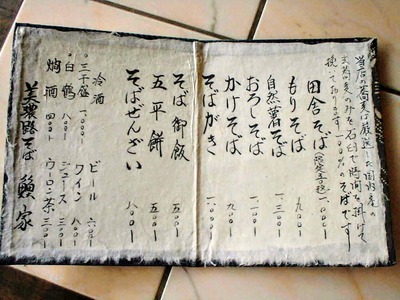 当店の蕎麦は厳選した国内産の
玄蕎麦のみを石臼で時間を掛けて
挽いております。100%のそばです。
田舎そば（限定手挽）一、〇〇〇
もりそば 九〇〇
自然薯そば 一、三〇〇
おろしそば 一、〇〇〇
かけそば 九〇〇
そばがき 一、〇〇〇
そば御飯 五〇〇
五平餅 五〇〇
そばぜんざい 八〇〇
冷酒
三千盛 一、〇〇〇
白鶴 八〇〇
燗酒 四〇〇
ビール 六〇〇
ワイン 八〇〇
ジュース 三〇〇
ウーロン茶 三〇〇
美濃路そば 家